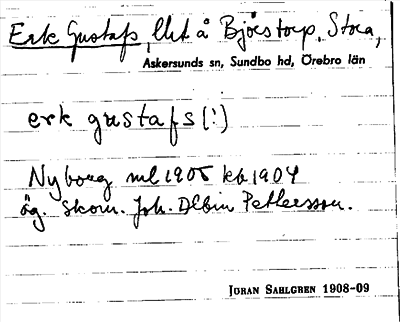 Erk Gustafs, lht å Björstorp, Stora,
Askersunds sn, Sundbo hd, Örebro län
erk gustafs (!)
Nyborg ml 1905 kb 1904
äg. Skom. Joh. Albin Pettersson.
JÖRAN SAHLGREN 1908-09